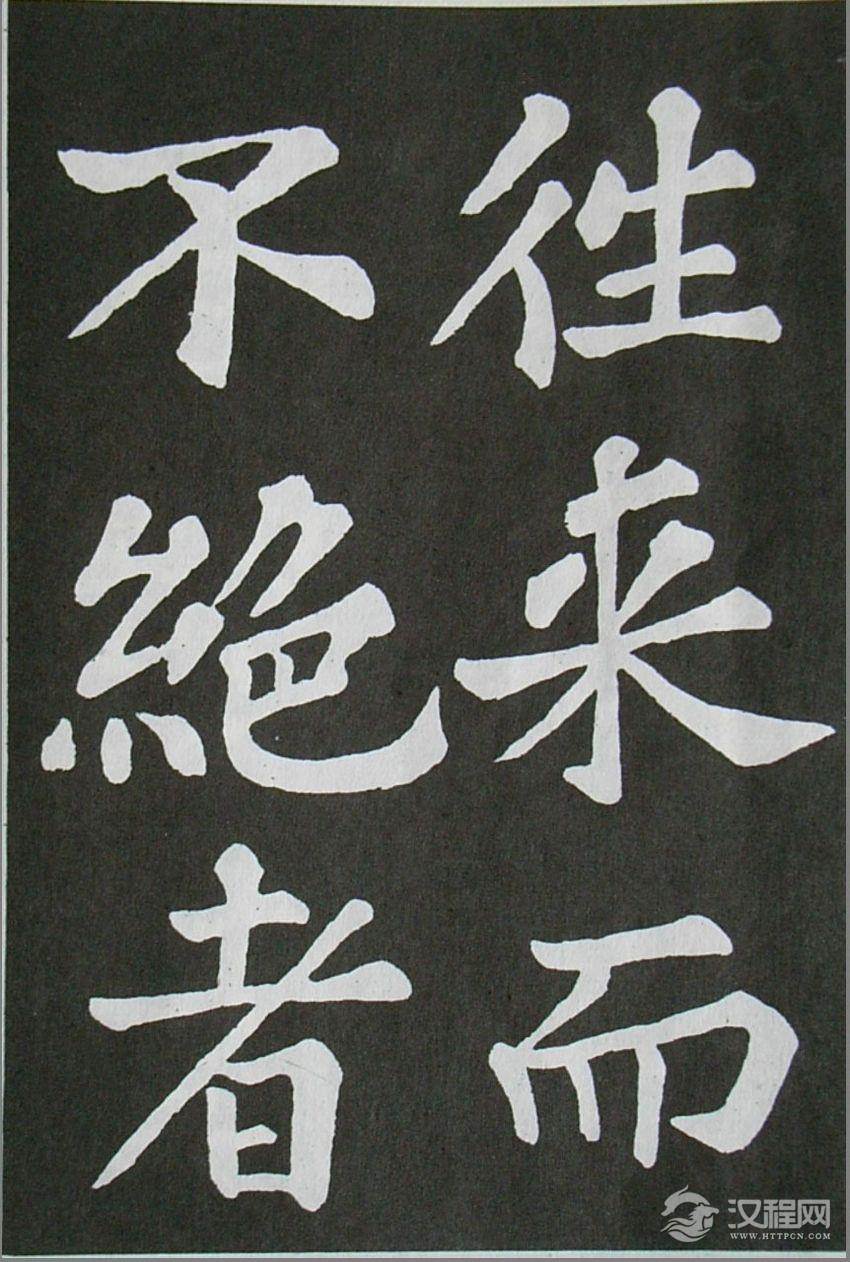 徃来而
不絶者
汉程网
WWW.HTTPCN.COM